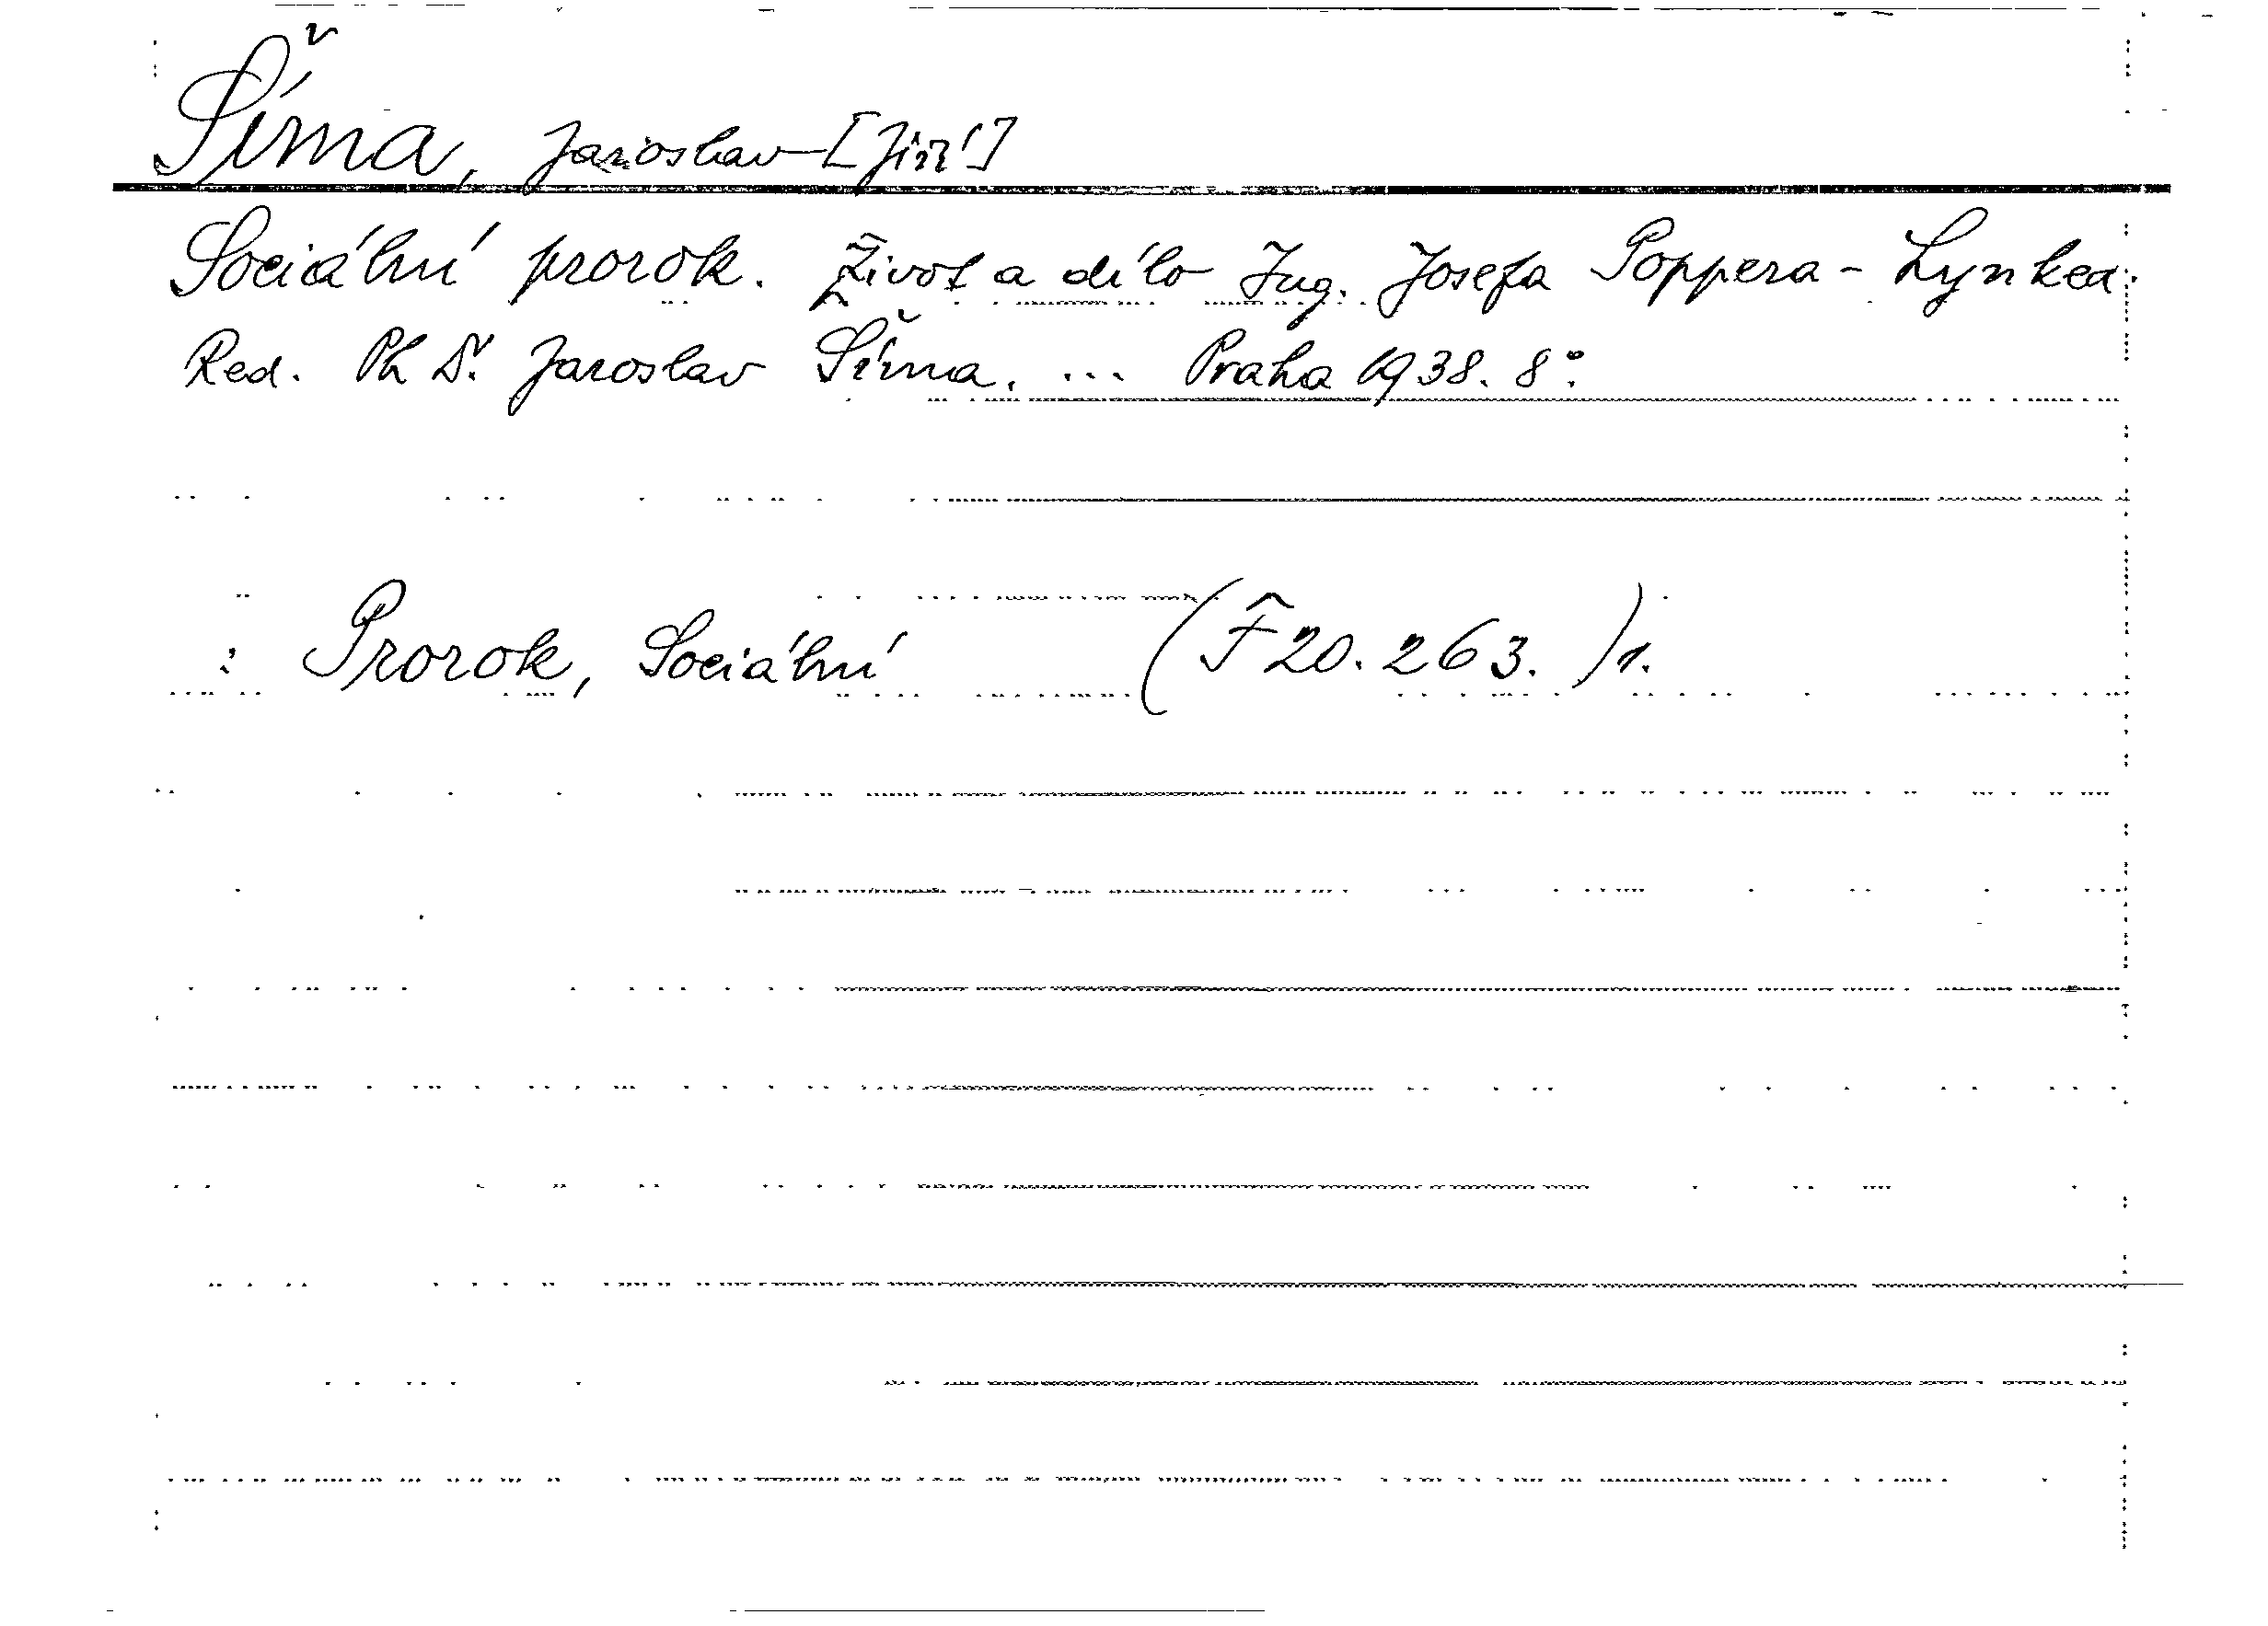 Šíma, Jaroslav [Jiří]
Sociální prorok. Život a dílo Ing. Josefa Poppera - Lynkea.
Red. PhDr. Jaroslav Šíma. ... Praha 1938. 8°.
: Prorok, Sociální (F 20.263.)1.